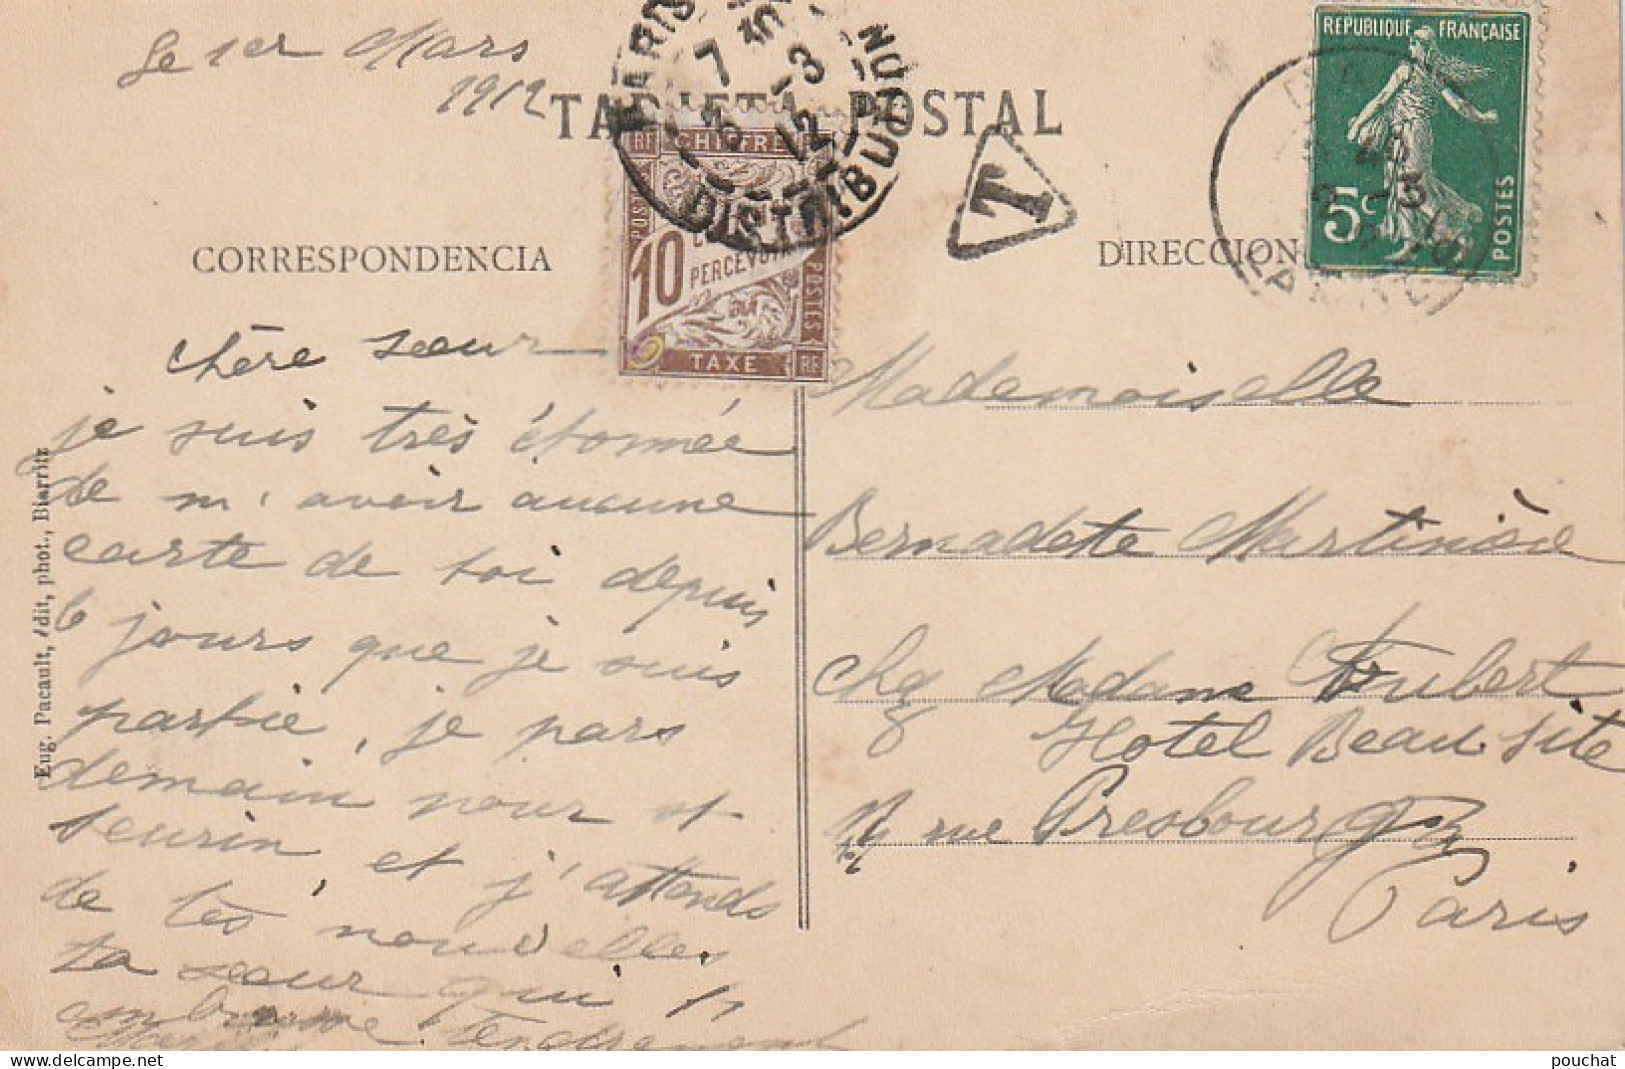 Le 1er Mars
1912
TARJETA POSTAL
PARIS
7 10
-3
12
DISTRIBUTION
RF CHIFFRE
POSTES
10
PERCEVOIR
POSTES
TAXE RF
T
REPUBLIQUE FRANÇAISE
5c
POSTES
CORRESPONDENCIA
DIRECCION
chère sœur
je suis très étonnée
de m'avoir aucune
carte de toi depuis
6 jours que je suis
partie, je pars
demain pour st
seurin et j'attends
de tes nouvelles
ta sœur qui t'
embrasse tendrement
Mademoiselle
Bernadete Martinière
chez Madame Hubert
Hotel Beau Site
rue Presbourg
Paris
Eug. Pacault, édit, phot., Biarritz
pouchat